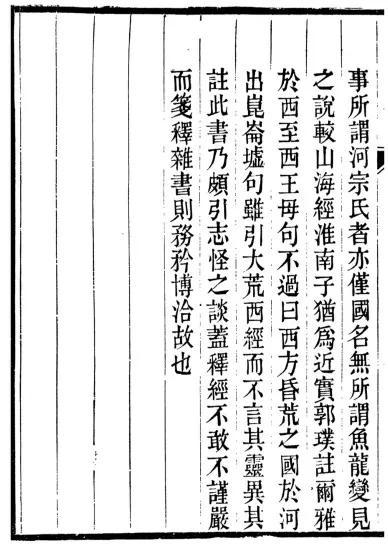 事所謂河宗氏者亦僅國名無所謂魚龍變見
之說較山海經淮南子猶爲近實郭璞註爾雅
於西至西王母句不過曰西方昏荒之國於河
出崑崙墟句雖引大荒西經而不言其靈異其
註此書乃頗引志怪之談蓋釋經不敢不謹嚴
而箋釋雜書則務矜博洽故也